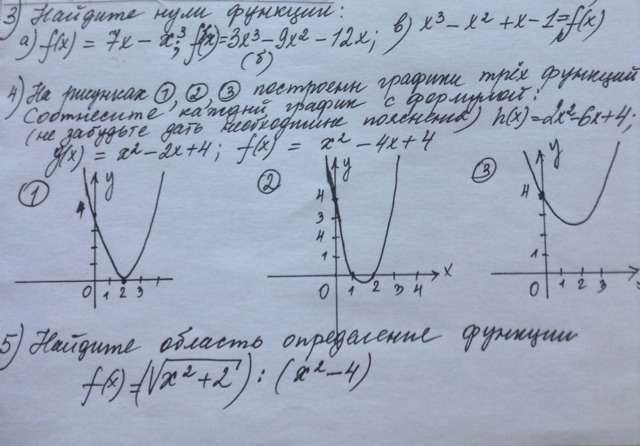 3) Найдите нули функции:
а) f(x) = 7x - x³; f(x) = 3x³ - 9x² - 12x; в) x³ - x² + x - 1 = f(x)
(б)
4) На рисунках ①, ②, ③ построены графики трёх функций
Соотнесите каждый график с формулой:
(не забудьте дать необходимые пояснения) h(x) = 2x² - 6x + 4;
g(x) = x² - 2x + 4; f(x) = x² - 4x + 4
① y 4 0 1 2 3
② y 4 3 4 1 0 1 2 3 4 x
③ y 4 1 0 1 2 3
5) Найдите область определение функции
f(x) = (√x² + 2) : (x² - 4)